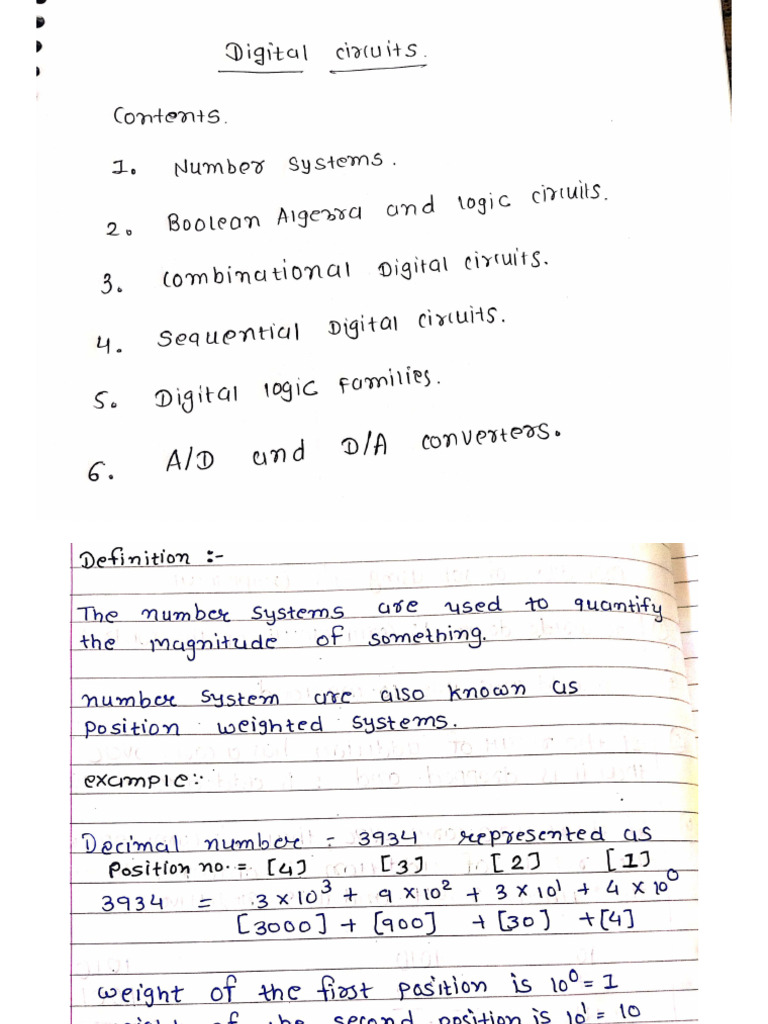 Digital circuits.
Contents.
1. Number systems.
2. Boolean Algebra and logic circuits.
3. Combinational Digital circuits.
4. Sequential Digital circuits.
5. Digital logic families.
6. A/D and D/A converters.
Definition :-
The number systems are used to quantify
the magnitude of something.
number system are also known as
position weighted systems.
example:-
Decimal number - 3934 represented as
Position no. = [4] [3] [2] [1]
3934 = 3 × 10³ + 9 × 10² + 3 × 10¹ + 4 × 10⁰
[3000] + [900] + [30] + [4]
weight of the first position is 10⁰ = 1
weight of the second position is 10¹ = 10